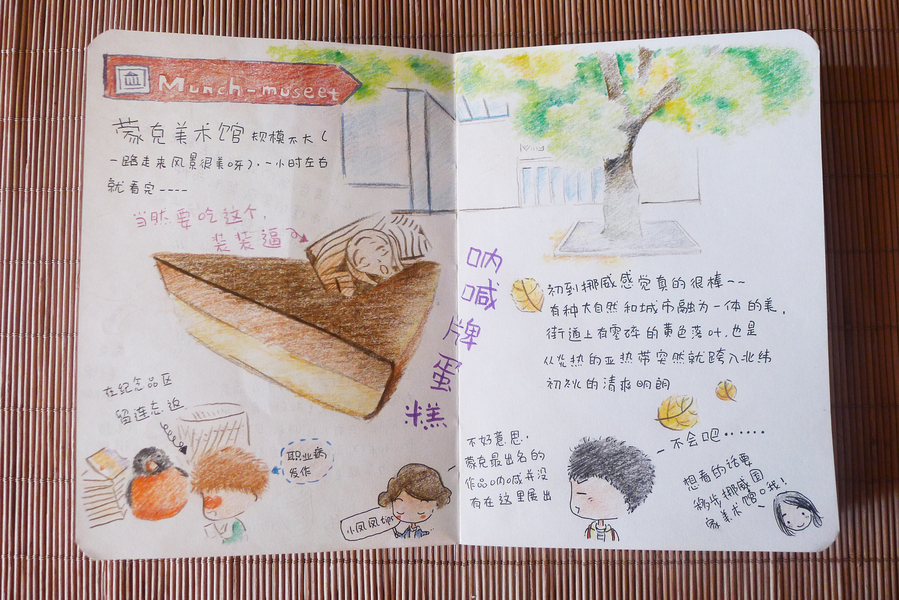 Munch-museet
蒙克美术馆 规模不大（
一路走来风景很美呀）.一小时左右
就看完----
当然要吃这个,
装装逼
呐喊牌蛋糕
在纪念品区
留连忘返
职业病
发作
小凤凤tips
初到挪威感觉真的很棒~~
有种大自然和城市融为一体的美,
街道上有零碎的黄色落叶,也是
从炎热的亚热带突然就跨入北纬
初秋的清爽明朗
不好意思,
蒙克最出名的
作品呐喊并没
有在这里展出
不会吧······
想看的话要
移步挪威国
家美术馆哦!